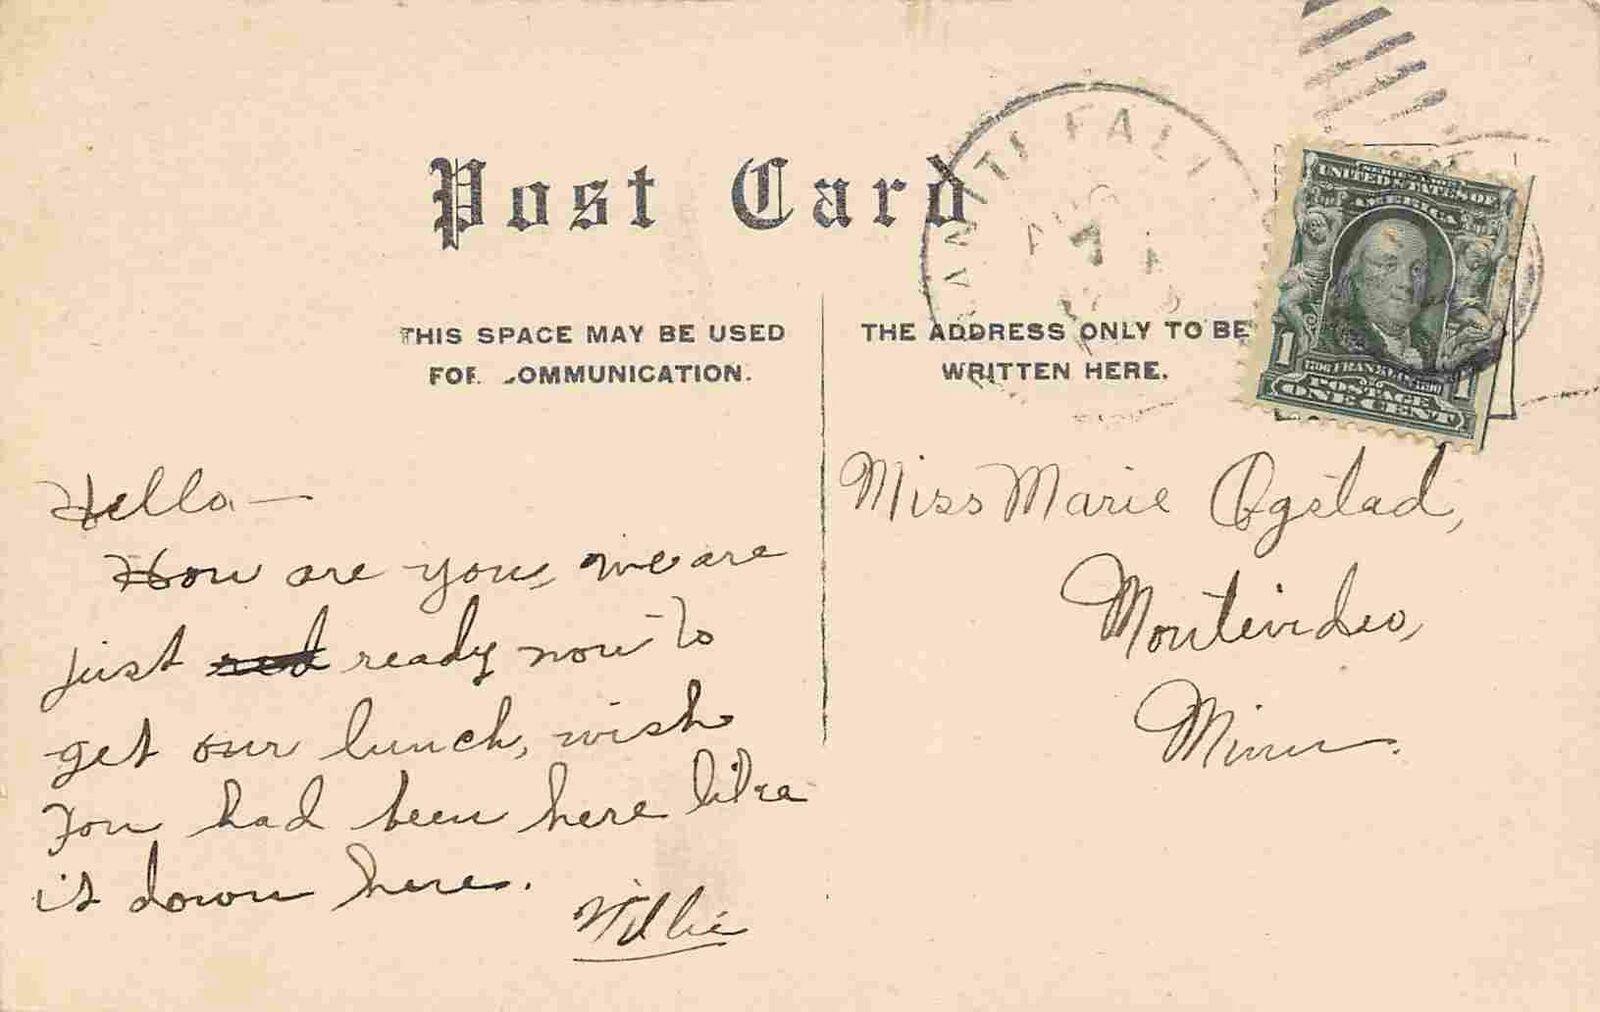 Post Card
THIS SPACE MAY BE USED
FOR COMMUNICATION.
THE ADDRESS ONLY TO BE
WRITTEN HERE.
ANITE FALL
AUG
7
UNITED STATES OF
AMERICA
1
1706 FRANKLIN 1790
1
POSTAGE
ONE CENT
Hello —
How are you, we are
just red ready now to
get our lunch, wish
you had been here like
it down here.
Willie
Miss Marie Ogstad,
Montevideo,
Minn.